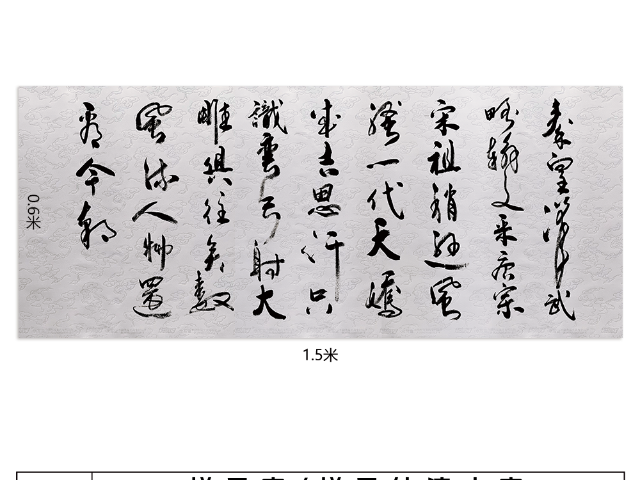 秦皇漢武
略輸文采唐宗
宋祖稍遜風
騷一代天驕
成吉思汗只
識彎弓射大
雕俱往矣數
風流人物還
看今朝
0.6米
1.5米